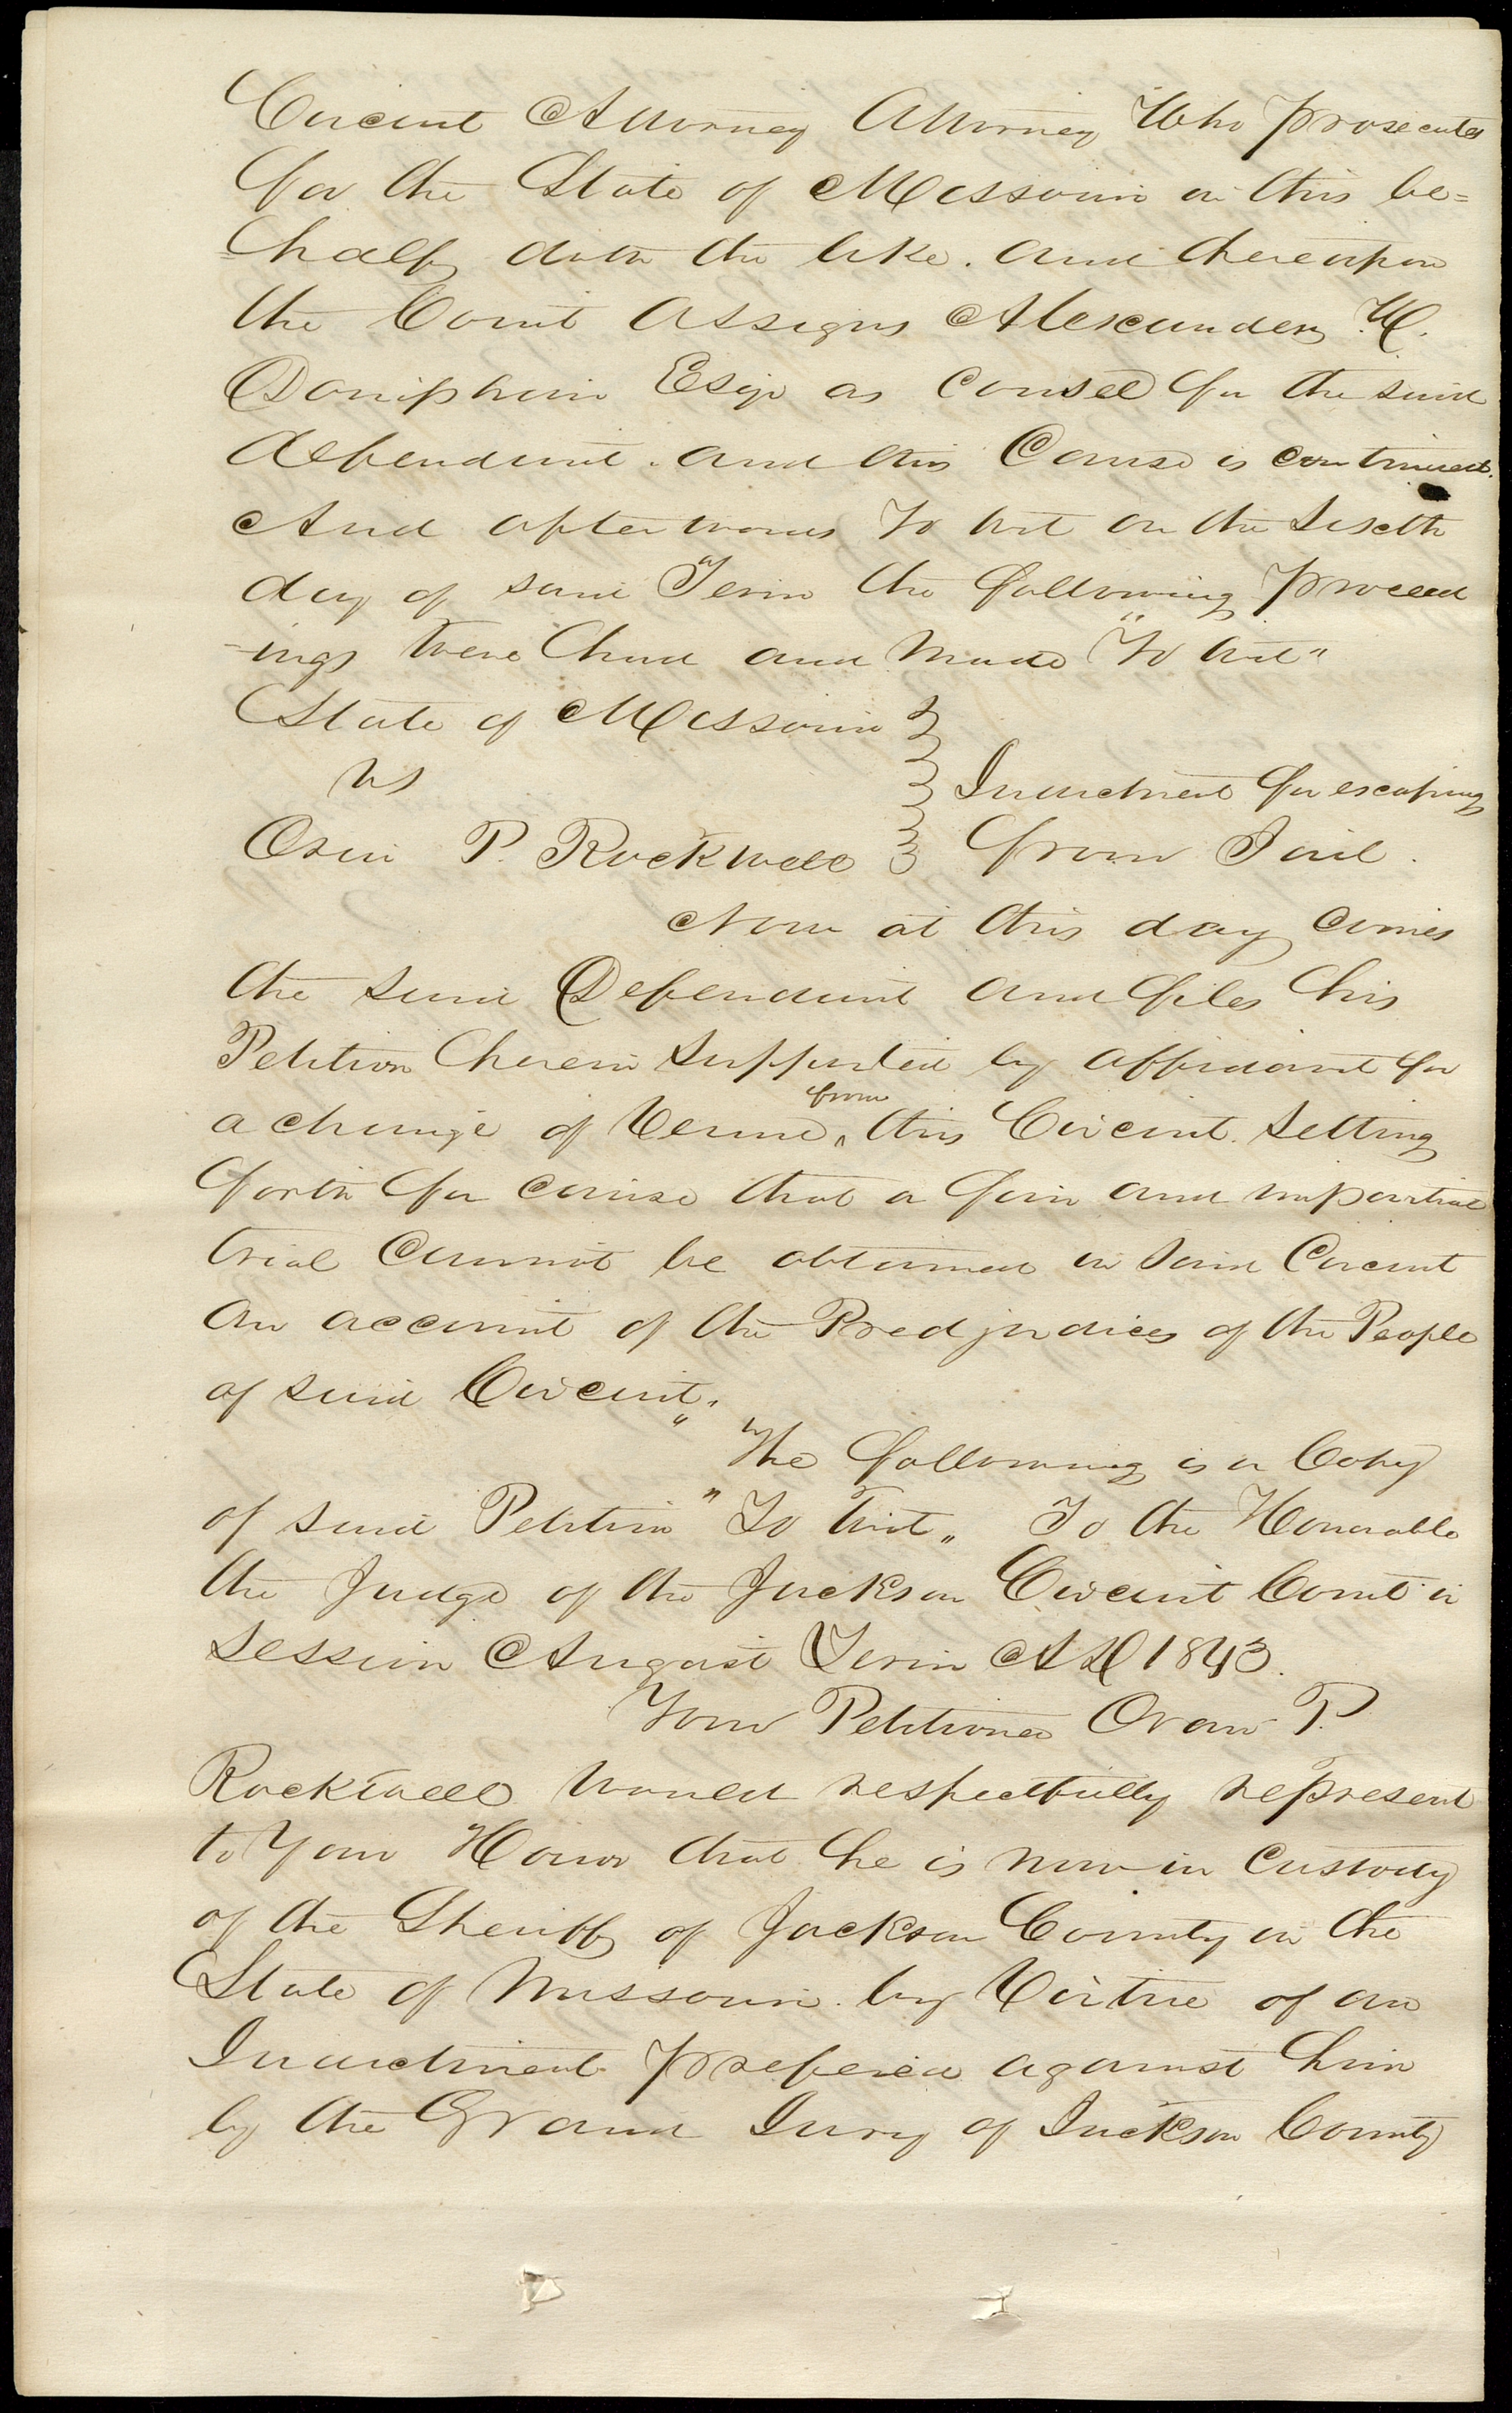 Circuit Attorney Attorney Who prosecutes
for the State of Missouri in this be=
half doth the like. and thereupon
the Court Assigns Alexander W.
Doniphan Esqr as Counsel for the said
defendant. and this Cause is continued.
And afterwards To wit on the Sixth
day of said Term the following proceed
-ings were had and made "To wit"
State of Missouri
vs
Indictment for escaping
Orin P. Rockwell from Jail.
Now at this day comes
the said Defendant and files his
Petition herein supported by affidavit for
a change of Venue from this Circuit. Setting
forth for cause that a fair and impartial
trial Cannot be obtained in said Circuit
on account of the Predjudices of the People
of said Circuit."
The following is a Copy
of said Petition "To Wit" To the Honorable
the Judge of the Jackson Circuit Court in
session August Term A D 1843.
Your Petitioner Oran P.
Rockwell would respectfully represent
to Your Honor that he is now in Custody
of the Sheriff of Jackson County in the
State of Missouri. by Virtue of an
Indictment prefered against him
by the Grand Jury of Jackson County